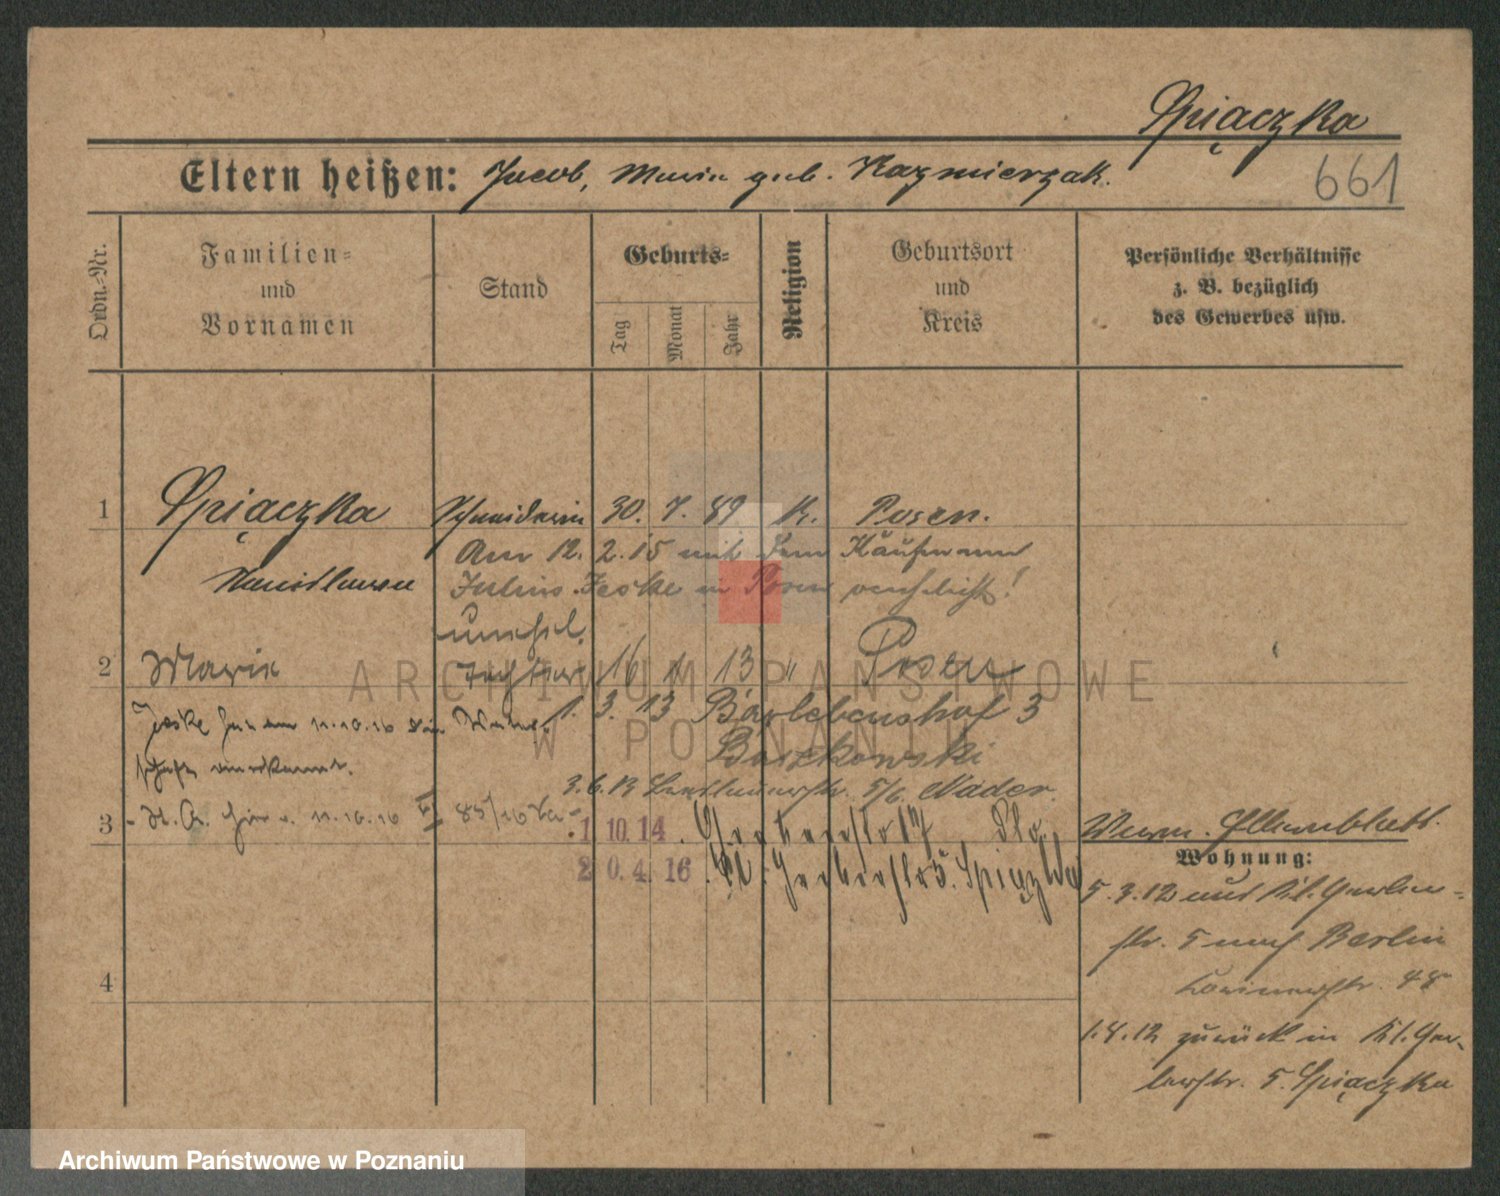 Śpiączka
Eltern heißen: Jacob, Maria geb. Kazmierzak.
661
Ordn.-Nr.
Familien-
und
Vornamen
Stand
Geburts-
Tag
Monat
Jahr
Religion
Geburtsort
und
Kreis
Persönliche Verhältnisse
z. B. bezüglich
des Gewerbes usw.
1 Spiączka Schneiderin 30. 7. 89 K. Posen.
Am 12. 2. 15 mit dem Kaufmann
Stanislawa
Julius Jeske in Posen verehelicht!
unehel.
2 Maria Tochter 16 1 13 " Posen
Jeske hat am 11.10.16 die Vater-
1. 3. 13 Bärlebenshof 3
schaft anerkannt.
Boszkowski
3.6.13 5/6 Nader.
3 11.10.16 85/16
1 10. 14
Gerberstr 17
20. 4. 16 Kl. Gerberstr 5. Spiączka
Wohnung:
5.3.12 aus Kl. Gerber-
str. 5 nach Berlin
48
1.4.12 zurück in Kl. Ger-
berstr. 5. Spiączka
4
ARCHIWUM PAŃSTWOWE
W POZNANIU
Archiwum Państwowe w Poznaniu